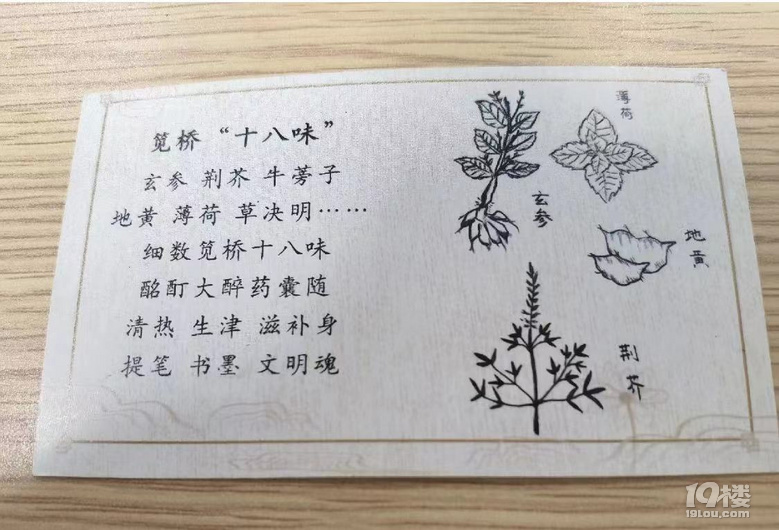 笕桥“十八味”
玄参 荆芥 牛蒡子
地黄 薄荷 草决明……
细数笕桥十八味
酩酊大醉药囊随
清热 生津 滋补身
提笔 书墨 文明魂
薄荷
玄参
地黄
荆芥
19楼
19lou.com